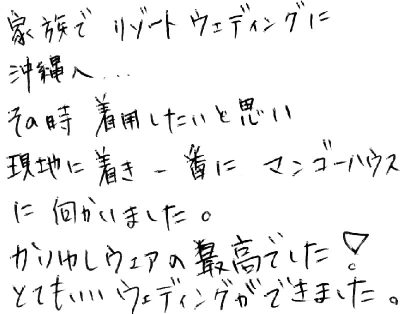 家族で リゾートウェディングに
沖縄へ...
その時 着用したいと思い
現地に着き一番に マンゴーハウス
に向かいました。
かりゆしウェアの最高でした!
とてもいいウェディングができました。